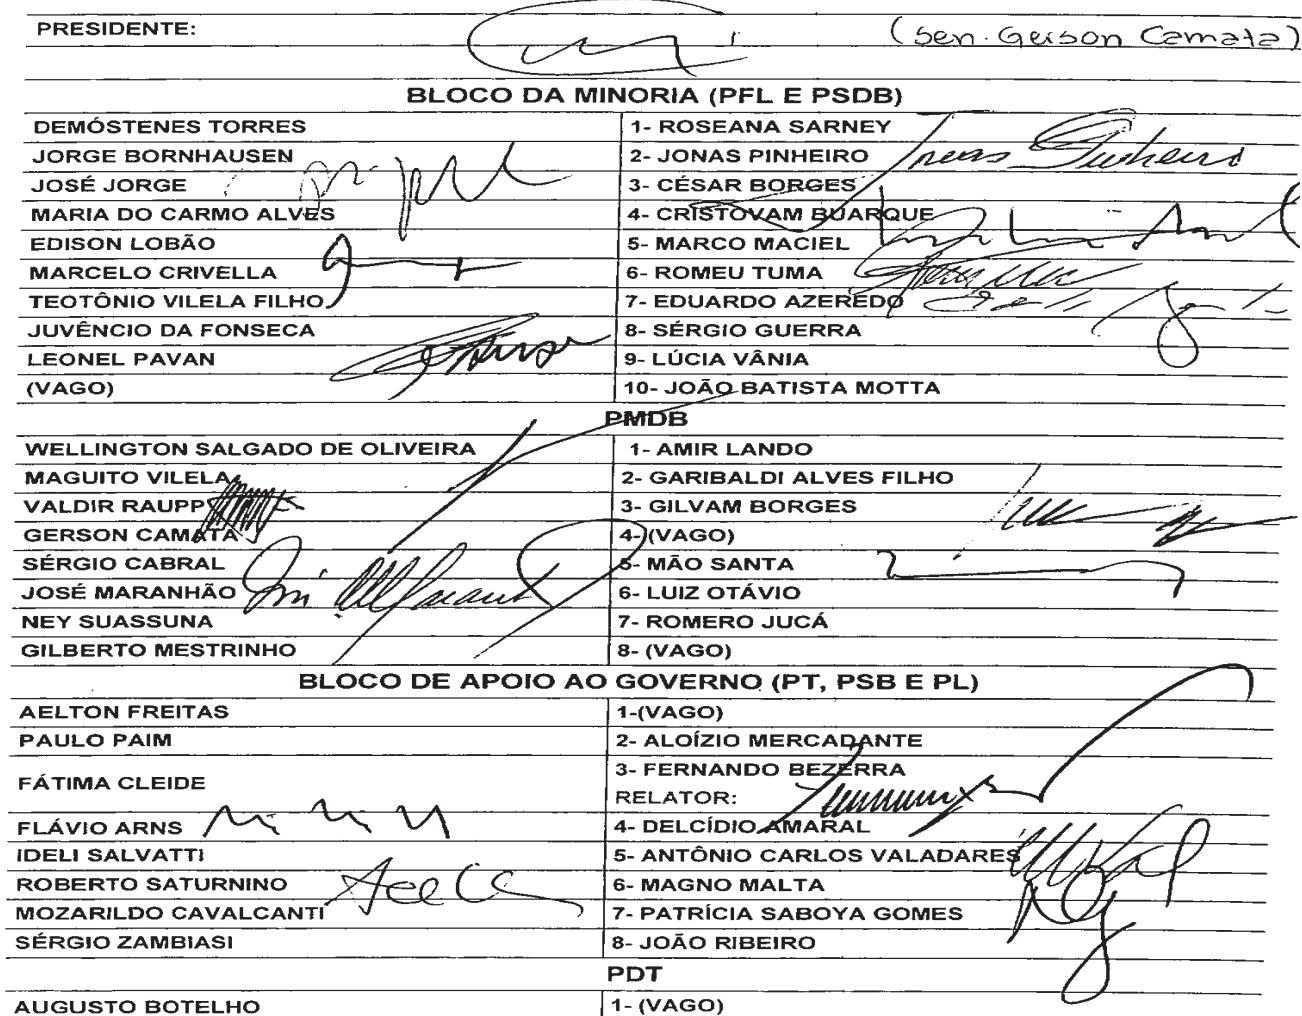 PRESIDENTE: (Sen. Gerson Camata)
BLOCO DA MINORIA (PFL E PSDB)
DEMÓSTENES TORRES 1- ROSEANA SARNEY
JORGE BORNHAUSEN 2- JONAS PINHEIRO
JOSÉ JORGE 3- CÉSAR BORGES
MARIA DO CARMO ALVES 4- CRISTOVAM BUARQUE
EDISON LOBÃO 5- MARCO MACIEL
MARCELO CRIVELLA 6- ROMEU TUMA
TEOTÔNIO VILELA FILHO 7- EDUARDO AZEREDO
JUVÊNCIO DA FONSECA 8- SÉRGIO GUERRA
LEONEL PAVAN 9- LÚCIA VÂNIA
(VAGO) 10- JOÃO BATISTA MOTTA
PMDB
WELLINGTON SALGADO DE OLIVEIRA 1- AMIR LANDO
MAGUITO VILELA 2- GARIBALDI ALVES FILHO
VALDIR RAUPP 3- GILVAM BORGES
GERSON CAMATA 4-(VAGO)
SÉRGIO CABRAL 5- MÃO SANTA
JOSÉ MARANHÃO 6- LUIZ OTÁVIO
NEY SUASSUNA 7- ROMERO JUCÁ
GILBERTO MESTRINHO 8- (VAGO)
BLOCO DE APOIO AO GOVERNO (PT, PSB E PL)
AELTON FREITAS 1-(VAGO)
PAULO PAIM 2- ALOÍZIO MERCADANTE
FÁTIMA CLEIDE 3- FERNANDO BEZERRA
RELATOR:
FLÁVIO ARNS 4- DELCÍDIO AMARAL
IDELI SALVATTI 5- ANTÔNIO CARLOS VALADARES
ROBERTO SATURNINO 6- MAGNO MALTA
MOZARILDO CAVALCANTI 7- PATRÍCIA SABOYA GOMES
SÉRGIO ZAMBIASI 8- JOÃO RIBEIRO
PDT
AUGUSTO BOTELHO 1- (VAGO)